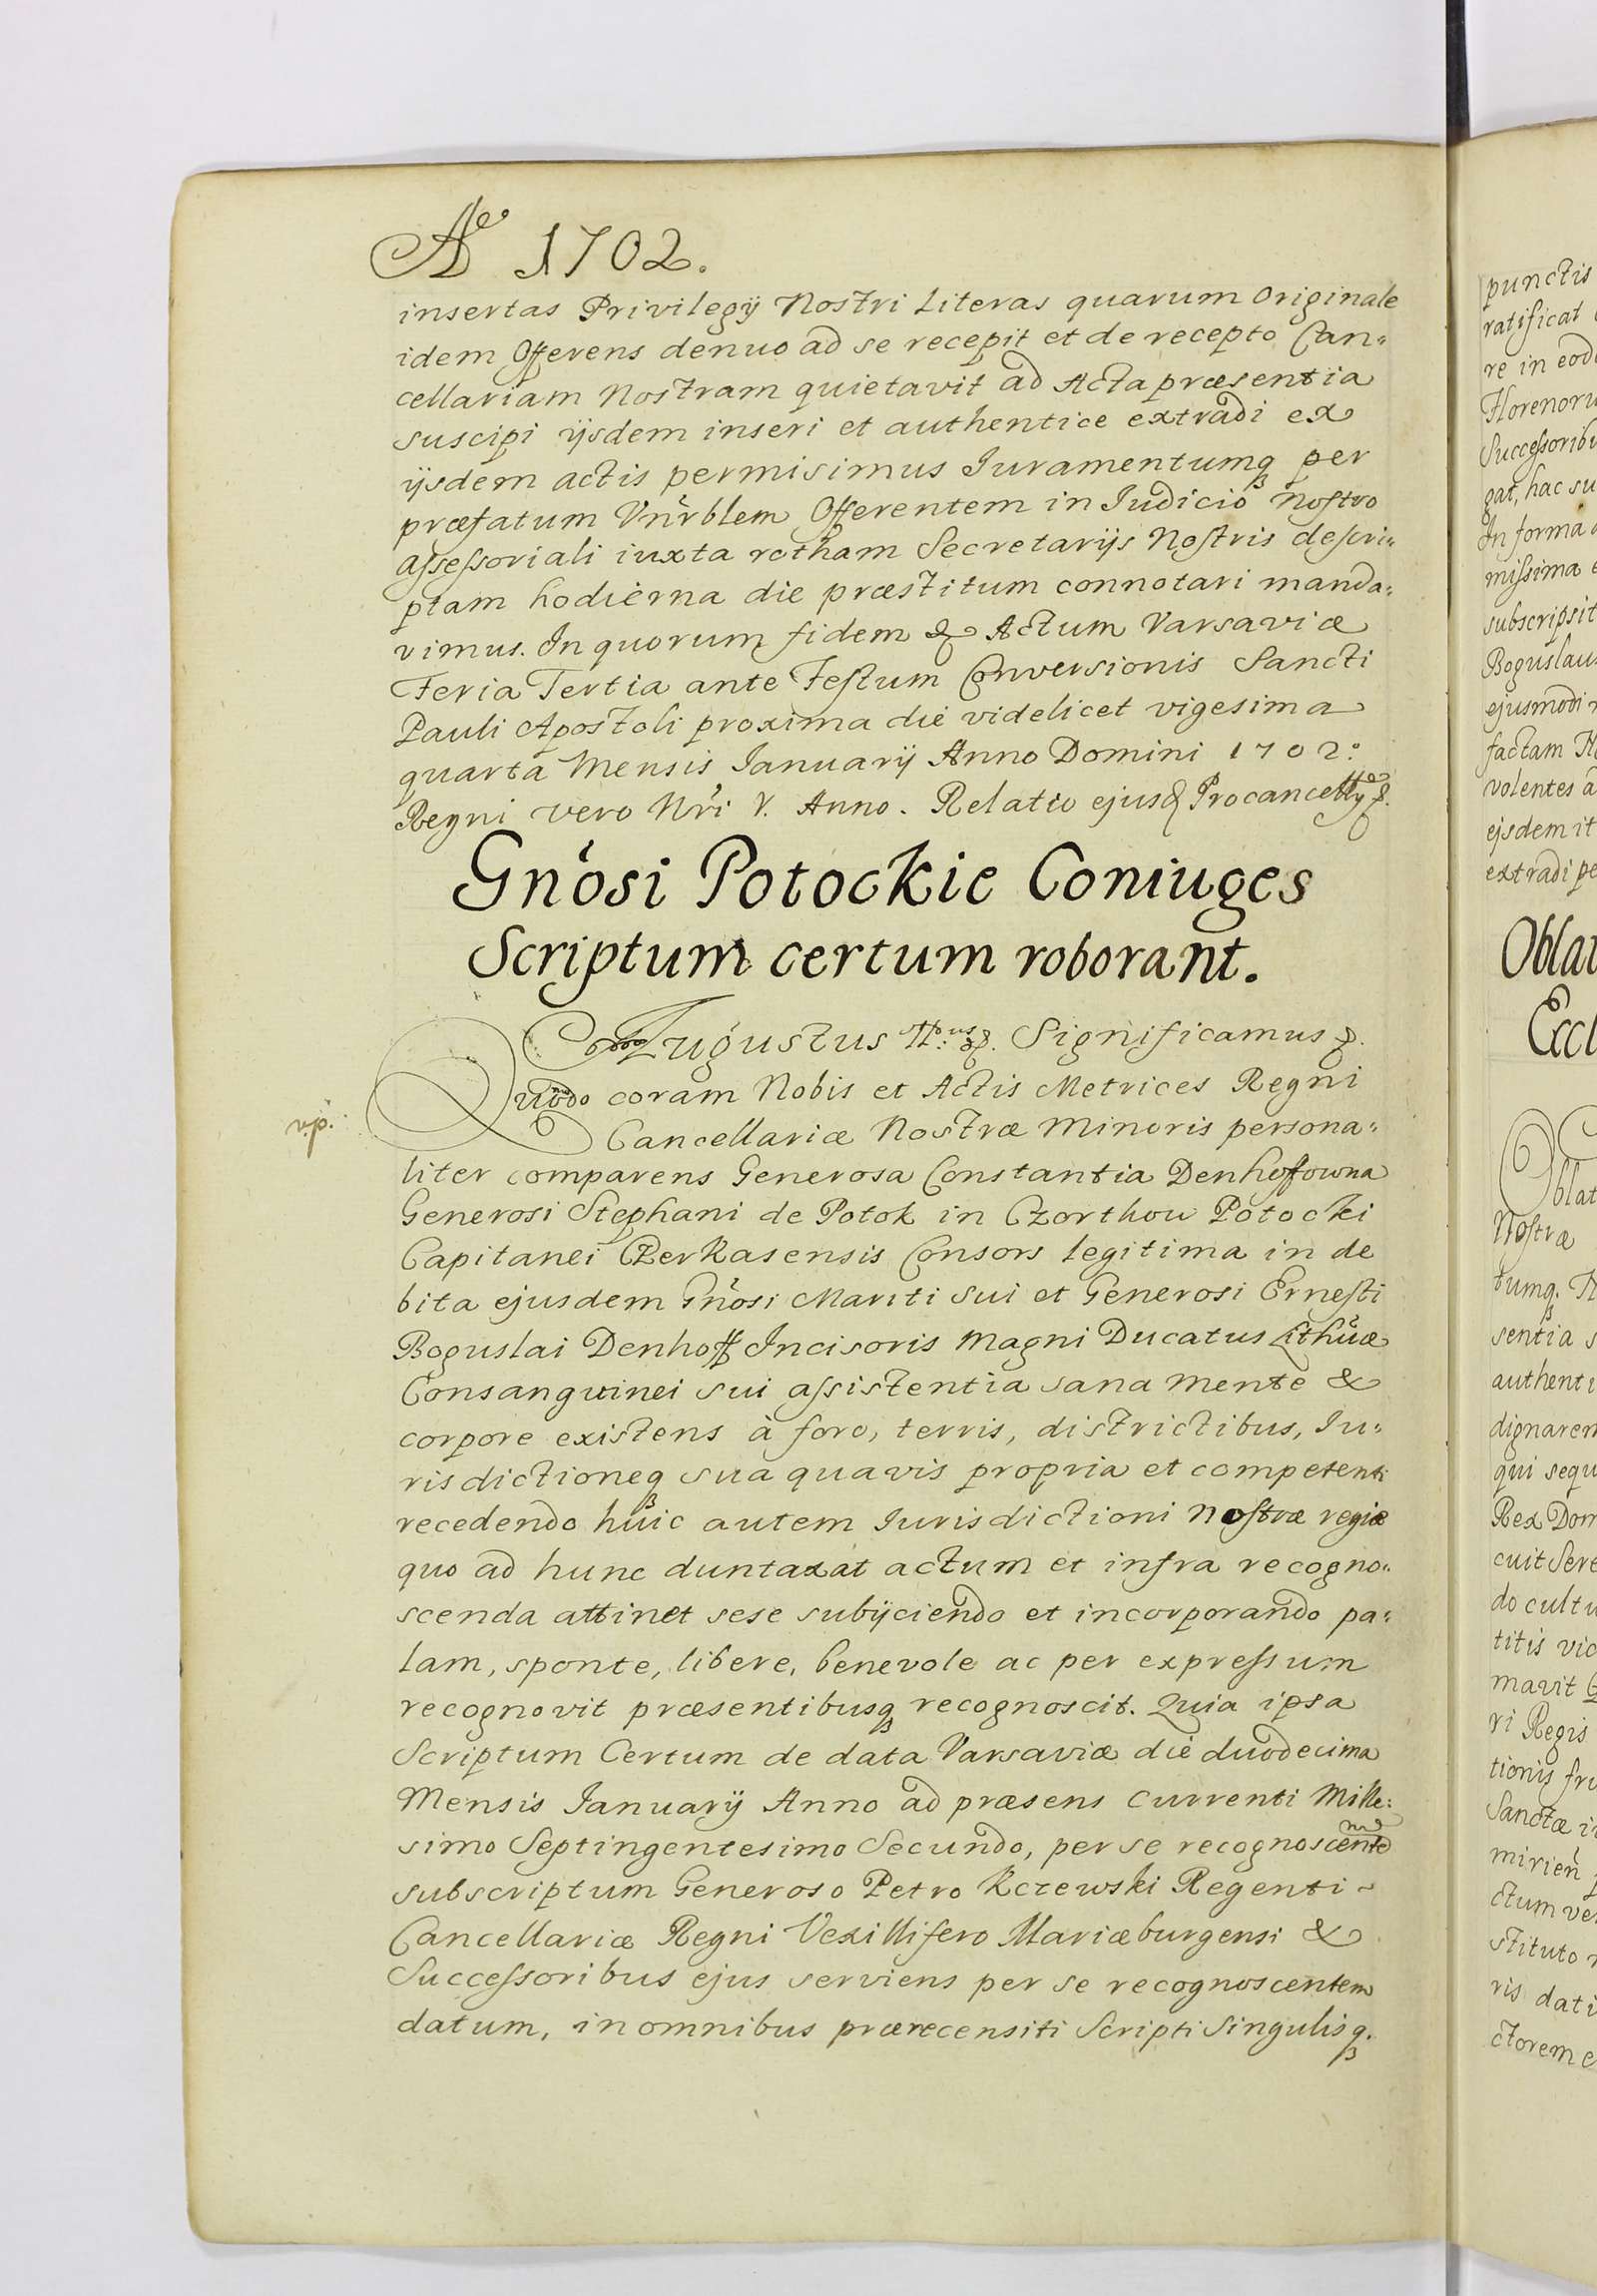 Aº 1702.
insertas Privilegÿ Nostri Literas quarum Originale
idem Offerens denuo ad se recepit et de recepto Can-
cellariam Nostram quietavit ad Acta præsentia
suscipi ijsdem inseri et authentice extradi ex
ijsdem actis permisimus Iuramentumq per
præfatum Vnŕblem Offerentem in Iudicio Nostro
assessoriali iuxta rotham Secretarijs Nostris descri-
ptam hodierna die præstitum connotari manda-
vimus. In quorum fidem & Actum Varsaviæ
Feria Tertia ante Festum Conversionis Sancti
Pauli Apostoli proxima die videlicet vigesima
quarta Mensis Ianuarij Anno Domini 1702º
Regni vero Nŕi V. Anno. Relatio ejusd Procancellÿ &.
Gńosi Potockie Coniuges
Scriptum certum roborant.
Augustus IIdus &. Significamus &.
Quomodo coram Nobis et Actis Metrices Regni
v.p.
Cancellariæ Nostræ Minoris persona-
liter comparens Generosa Constantia Denhoffowna
Generosi Stephani de Potok in Czorthow Potocki
Capitanei Czerkasensis Consors legitima in de
bita ejusdem Gńosi Mariti sui et Generosi Ernesti
Boguslai Denhoff Incisoris Magni Ducatus Lithúæ
Consanguinei sui assistentia sana mente &
corpore existens à foro, terris, districtibus, Iu-
risdictioneq sua quavis propria et competenti
recedendo huic autem Iurisdictioni Nostræ regiæ
quo ad hunc duntaxat actum et infra recogno-
scenda attinet sese subijciendo et incorporando pa-
lam, sponte, libere, benevole ac per expressum
recognovit præsentibusq recognoscit. Quia ipsa
Scriptum Certum de data Varsaviæ die duodecima
Mensis Ianuarij Anno ad præsens currenti Mille-
simo Septingentesimo Secundo, per se recognoscente
subscriptum Generoso Petro Kczewski Regenti
Cancellariæ Regni Vexillifero Mariæburgensi &
Successoribus ejus serviens per se recognoscentem
datum, in omnibus prærecensiti Scripti Singulisq.
punctis
ratificat
re in eod
Florenoru
Successoribu
gat, hac su
In forma
missima
subscripsit
Boguslau
ejusmodi
factam
volentes a
ejsdem it
extradi pe
Oblat
Eccl
Oblat
Nostræ
tumq.
sentia s
authenti
dignarem
qui sequ
Rex Dom
cuit Sere
do cultu
titis vic
mavit
ri Regis
tionis fru
Sanctæ i
mirień
ctum ve
stituto
ris dati
ctorem e